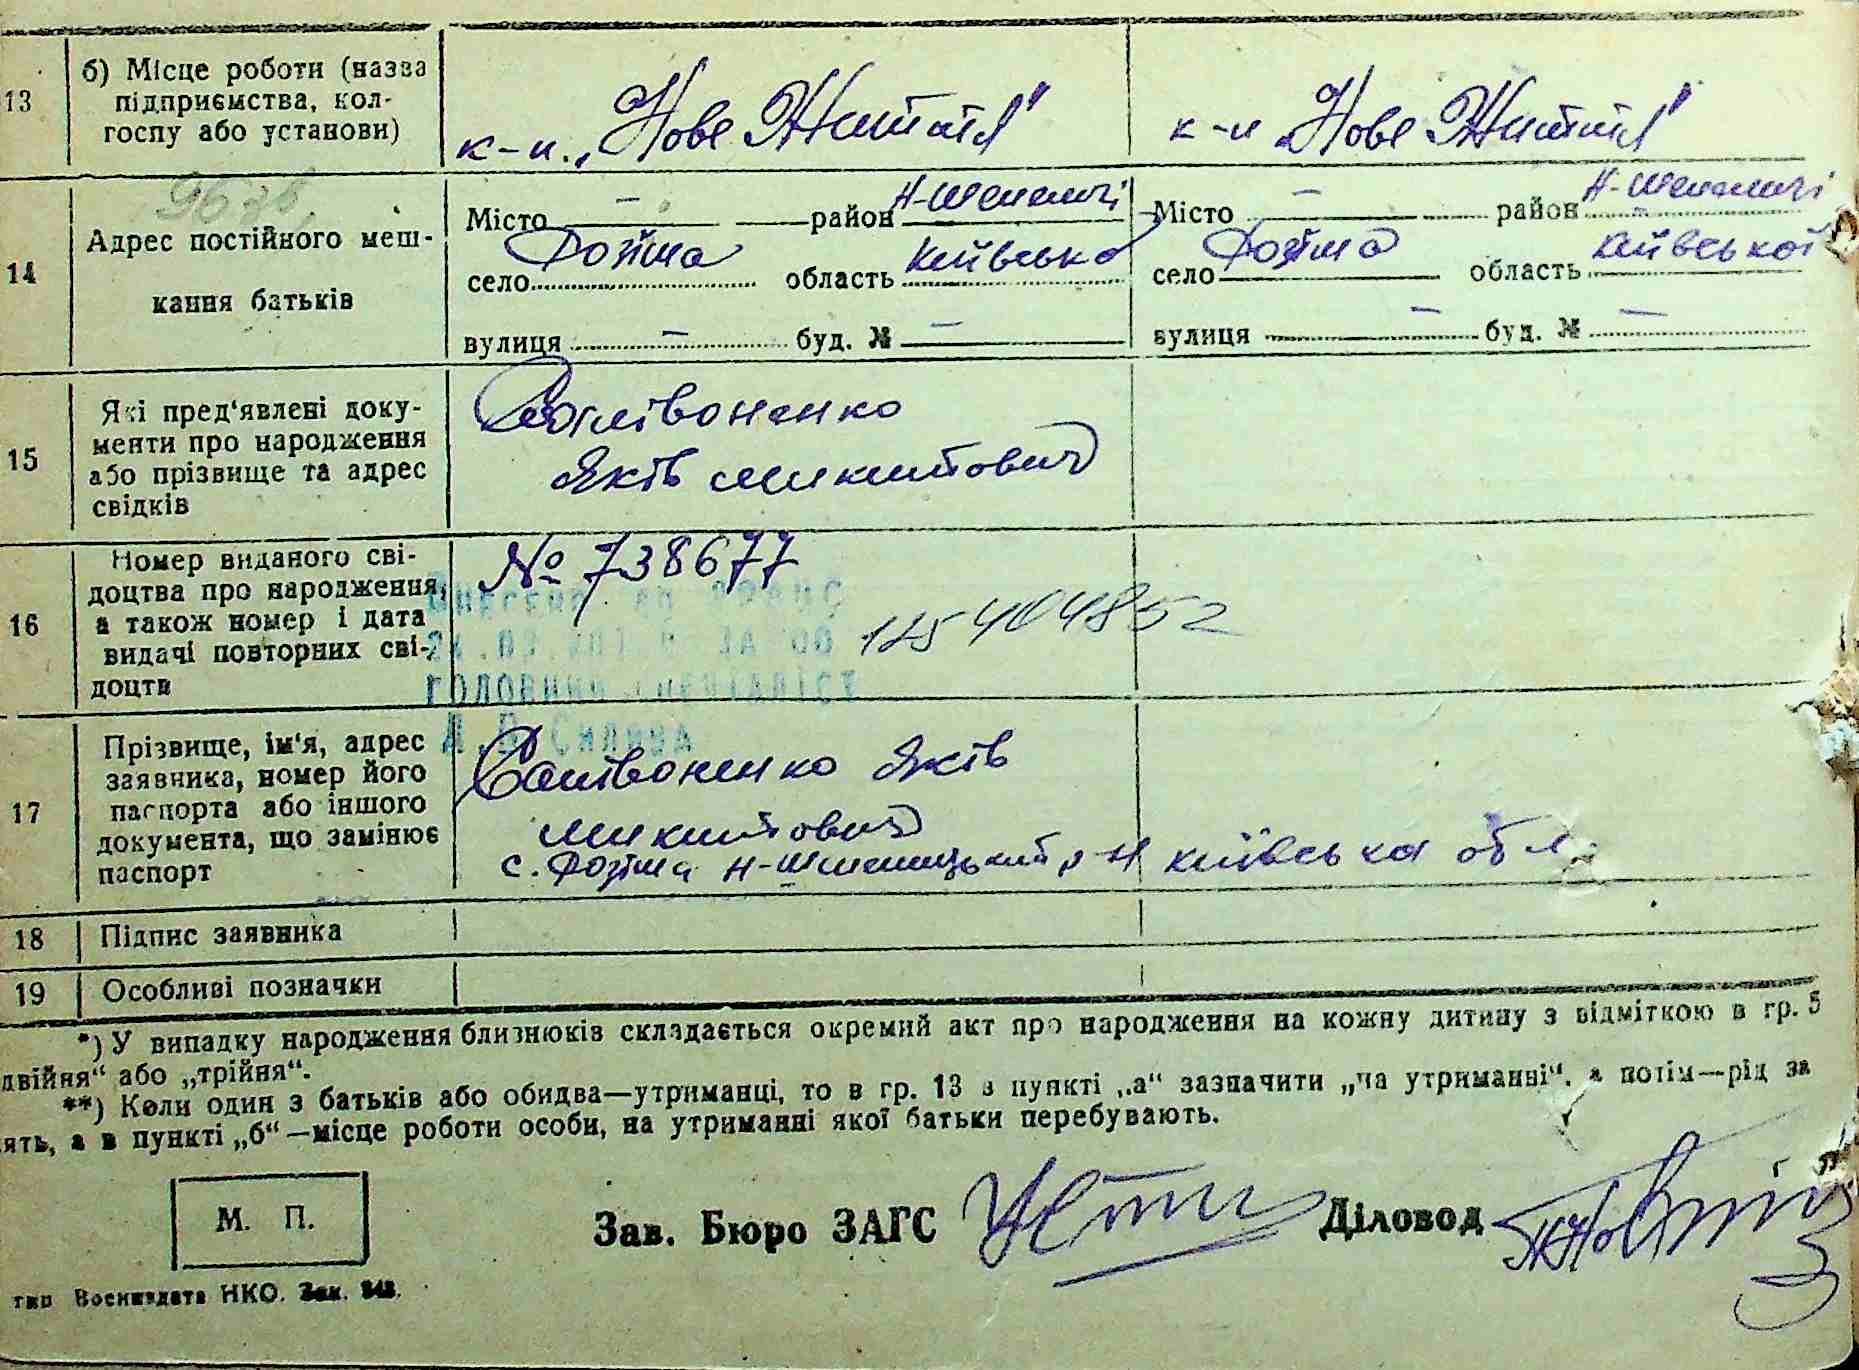 13 б) Місце роботи (назва підприємства, колгоспу або установи)
к-п. „Нове Життя"
к-п „Нове Життя"
14 Адрес постійного мешкання батьків
Місто — район Н-Шепеличі
село область Київська
вулиця — буд. № —
Місто — район Н-Шепеличі
село область Київської
вулиця — буд. № —
15 Які пред'явлені документи про народження або прізвище та адрес свідків
Селівоненко
Яків Микитович
16 Номер виданого свідоцтва про народження, а також номер і дата видачі повторних свідоцтв
№ 738677
125404852
головний спеціаліст
17 Прізвище, ім'я, адрес заявника, номер його паспорта або іншого документа, що замінює паспорт
Селівоненко Яків
Микитович
с. Н-Шепелицький р-н Київська обл.
18 Підпис заявника
19 Особливі позначки
*) У випадку народження близнюків складається окремий акт про народження на кожну дитину з відміткою в гр. 5
двійня“ або „трійня“.
**) Коли один з батьків або обидва—утриманці, то в гр. 13 в пункті „а“ зазначити „на утриманні“, а потім—рід за
ять, а в пункті „б“—місце роботи особи, на утриманні якої батьки перебувають.
М. П.
Зав. Бюро ЗАГС
Діловод
тип Воениздата НКО. Зак. 348.